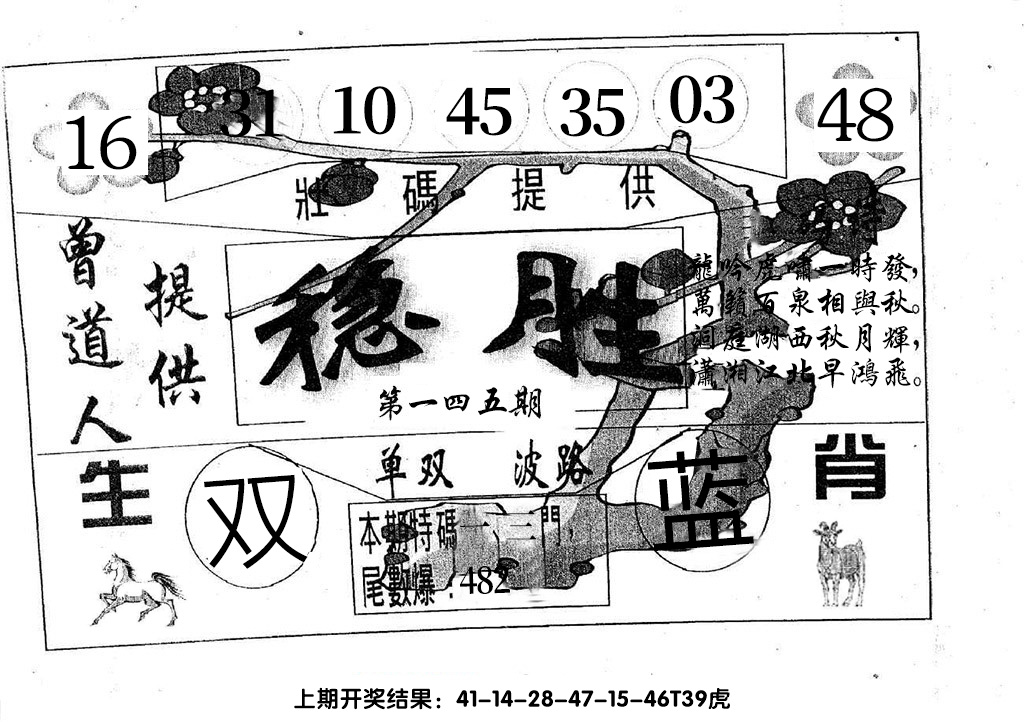 16 31 10 45 35 03 48
壯碼提供
曾道人
提供
稳胜
第一四五期
特
龍吟虎嘯一時發，
萬籟百泉相與秋。
洄庭湖西秋月輝，
瀟湘江北早鴻飛。
单双 波路
生肖
双
蓝
本期特碼一、三門，
尾數爆：482
上期开奖结果：41-14-28-47-15-46T39虎